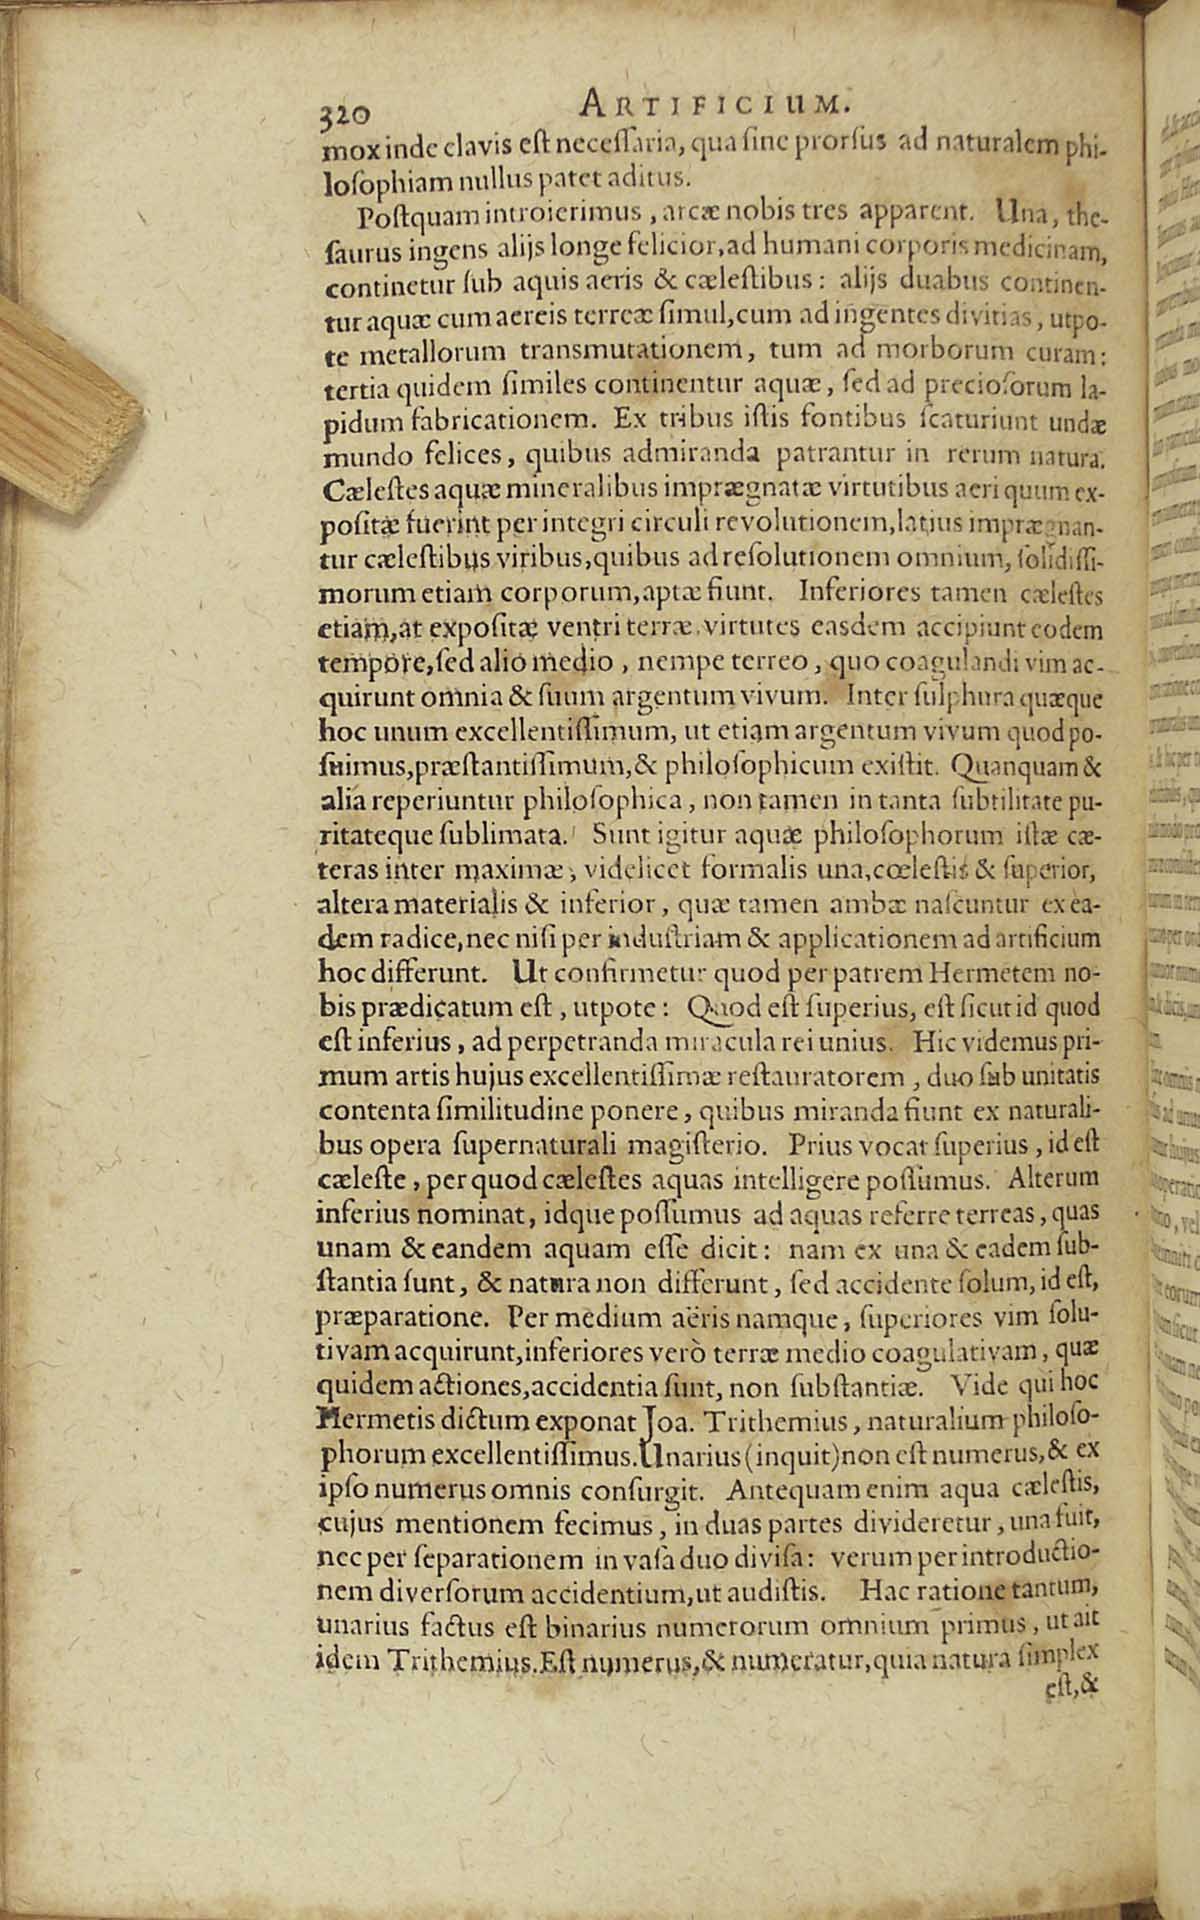 320 ARTIFICIUM.
mox inde clavis eſt neceſſaria, qua ſine prorſus ad naturalem phi-
loſophiam nullus patet aditus.
Poſtquam introierimus, arcæ nobis tres apparent. Una, the-
ſaurus ingens alijs longe felicior, ad humani corporis medicinam,
continetur ſub aquis aeris & cæleſtibus: alijs duabus continen-
tur aquæ cum aereis terreæ ſimul, cum ad ingentes divitias, utpo-
te metallorum transmutationem, tum ad morborum curam:
tertia quidem ſimiles continentur aquæ, ſed ad precioſorum la-
pidum fabricationem. Ex tribus iſtis fontibus ſcaturiunt undæ
mundo felices, quibus admiranda patrantur in rerum natura.
Cæleſtes aquæ mineralibus imprægnatæ virtutibus aeri quum ex-
poſitæ fuerint per integri circuli revolutionem, latius imprægnan-
tur cæleſtibus viribus, quibus ad reſolutionem omnium, ſolidiſſi-
morum etiam corporum, aptæ fiunt. Inferiores tamen cæleſtes
etiam, at expoſitæ ventri terræ, virtutes easdem accipiunt eodem
tempore, ſed alio medio, nempe terreo, quo coagulandi vim ac-
quirunt omnia & ſuum argentum vivum. Inter ſulphura quæque
hoc unum excellentiſſimum, ut etiam argentum vivum quod po-
ſuimus, præſtantiſſimum, & philoſophicum exiſtit. Quanquam &
alia reperiuntur philoſophica, non tamen in tanta ſubtilitate pu-
ritateque ſublimata. Sunt igitur aquæ philoſophorum iſtæ cæ-
teras inter maximæ, videlicet formalis una, cœleſtis & ſuperior,
altera materialis & inferior, quæ tamen ambæ naſcuntur ex ea-
dem radice, nec niſi per induſtriam & applicationem ad artificium
hoc differunt. Ut confirmetur quod per patrem Hermetem no-
bis prædicatum eſt, utpote: Quod eſt ſuperius, eſt ſicut id quod
eſt inferius, ad perpetranda miracula rei unius. Hic videmus pri-
mum artis hujus excellentiſſimæ reſtauratorem, duo ſub unitatis
contenta ſimilitudine ponere, quibus miranda fiunt ex naturali-
bus opera ſupernaturali magiſterio. Prius vocat ſuperius, id eſt
cæleſte, per quod cæleſtes aquas intelligere poſſumus. Alterum
inferius nominat, idque poſſumus ad aquas referre terreas, quas
unam & eandem aquam eſſe dicit: nam ex una & eadem ſub-
ſtantia ſunt, & natura non differunt, ſed accidente ſolum, id eſt,
præparatione. Per medium aëris namque, ſuperiores vim ſolu-
tivam acquirunt, inferiores verò terræ medio coagulativam, quæ
quidem actiones, accidentia ſunt, non ſubſtantiæ. Vide qui hoc
Hermetis dictum exponat Joa. Trithemius, naturalium philoſo-
phorum excellentiſſimus. Unarius (inquit) non eſt numerus, & ex
ipſo numerus omnis conſurgit. Antequam enim aqua cæleſtis,
cujus mentionem fecimus, in duas partes divideretur, una fuit,
nec per ſeparationem in vaſa duo diviſa: verum per introductio-
nem diverſorum accidentium, ut audiſtis. Hac ratione tantum,
unarius factus eſt binarius numerorum omnium primus, ut ait
idem Trithemius. Eſt numerus, & numeratur, quia natura ſimplex
eſt, &